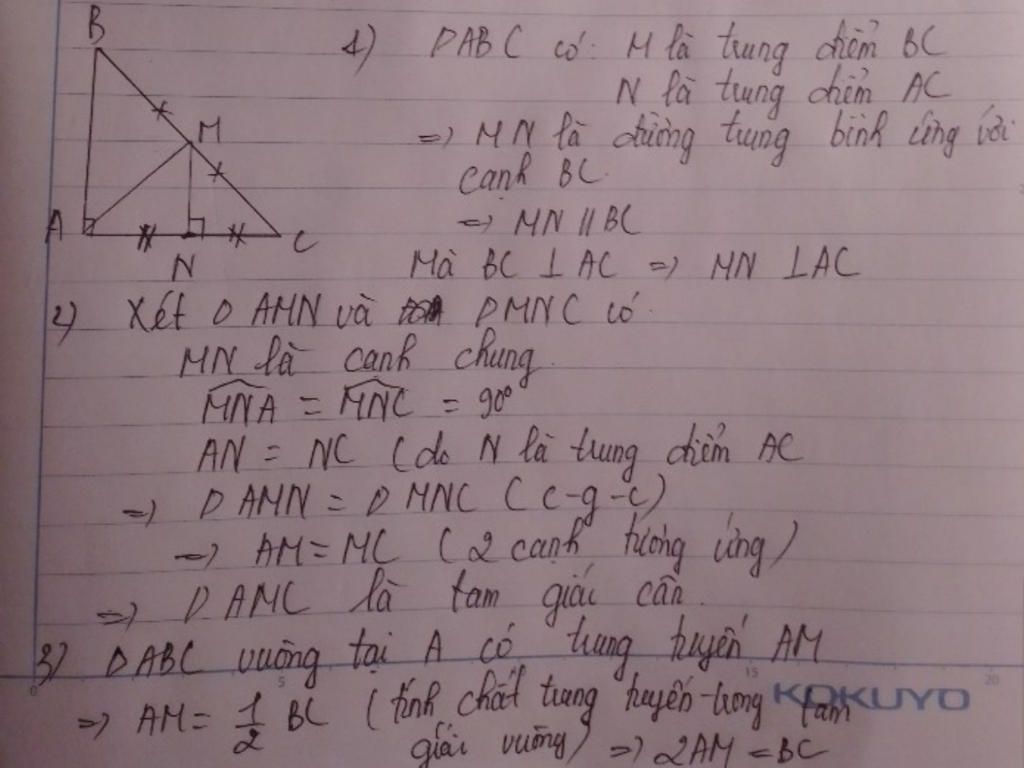 B
M
A
N
C
1) ΔABC có: M là trung điểm BC
N là trung điểm AC
=> MN là đường trung bình ứng với
cạnh BC.
=> MN // BC
Mà BC ⊥ AC => MN ⊥ AC
2) Xét Δ AMN và ΔMNC có
MN là cạnh chung.
MNA = MNC = 90°
AN = NC (do N là trung điểm AC
=> Δ AMN = Δ MNC (c-g-c)
=> AM = MC (2 cạnh tương ứng)
=> Δ AMC là tam giác cân.
3) ΔABC vuông tại A có trung tuyến AM
=> AM = 1/2 BC (tính chất trung tuyến trong tam
giác vuông) => 2AM = BC
0 5 15 20
KOKUYO